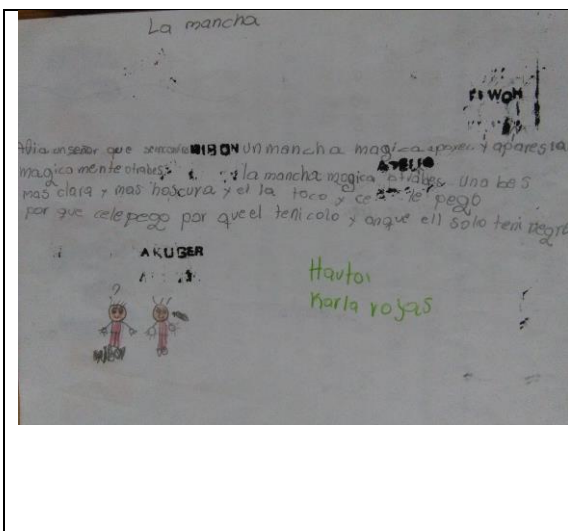 La mancha
EL WOM
Abia un señor que se MIBON un mancha magica y aparesia
magica mente otrabes la mancha mogica otrabes una bes
mas clara y mas hoscura y el la toco y le pego
por que cele pego por que el teni colo y anque ell solo teni negro
AKUGER
Hautor
Karla rojas
?
MIBON